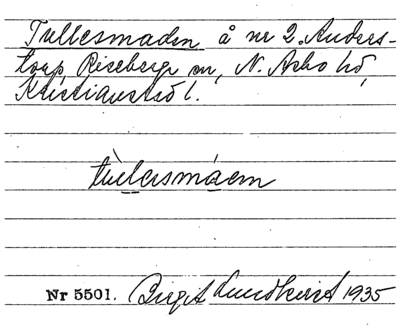 Tullesmaden å nr 2. Anders-
torp, Riseberga sn, N. Asbo hd,
Kristianstads l.
tùllarsmáen
Nr 5501. Birgit Lundkvist 1935